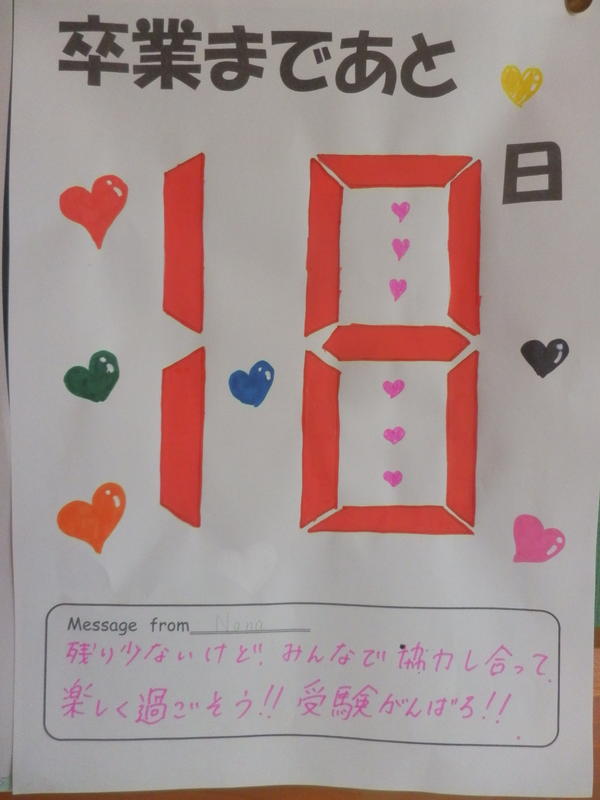 卒業まであと
18
日
Message from Nana
残り少ないけど、みんなで協力し合って、
楽しく過ごそう!! 受験がんばろ!!